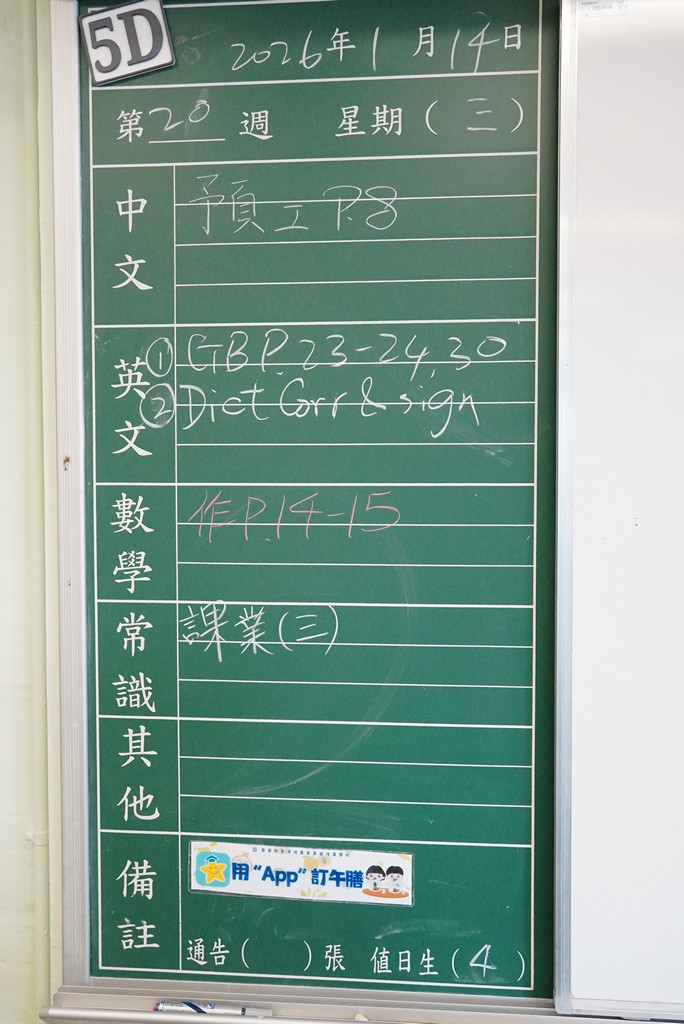 5D
2026年1月14日
第20週 星期(三)
中文
預工 P.8
英文
① GB P.23-24,30
② Dict Corr & sign
數學
作P.14-15
常識
課業(三)
其他
備註
用“App”訂午膳
通告( )張 值日生(4)